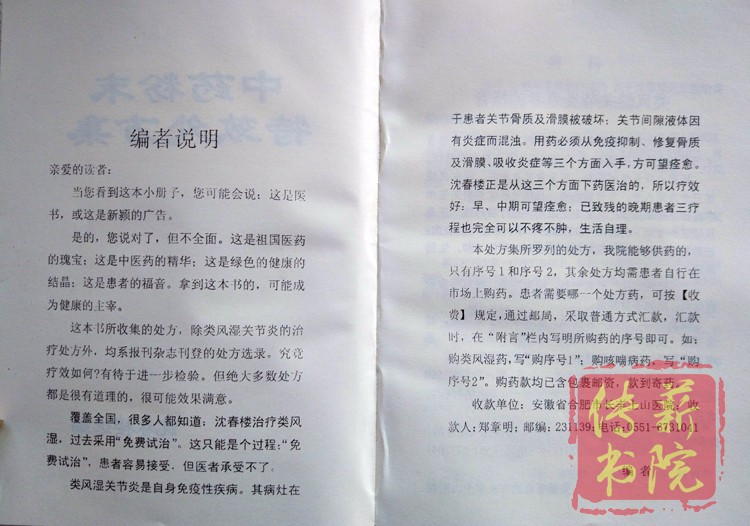 编者说明
亲爱的读者：
当您看到这本小册子，您可能会说：这是医
书，或这是新颖的广告。
是的，您说对了，但不全面。这是祖国医药
的瑰宝；这是中医药的精华；这是绿色的健康的
结晶；这是患者的福音。拿到这本书的，可能成
为健康的主宰。
这本书所收集的处方，除类风湿关节炎的治
疗处方外，均系报刊杂志刊登的处方选录。究竟
疗效如何?有待于进一步检验。但绝大多数处方
都是很有道理的，很可能效果满意。
覆盖全国，很多人都知道：沈春楼治疗类风
湿，过去采用“免费试治”。这只能是个过程；“免
费试治”，患者容易接受，但医者承受不了。
类风湿关节炎是自身免疫性疾病。其病灶在
于患者关节骨质及滑膜被破坏；关节间隙液体因
有炎症而混浊。用药必须从免疫抑制、修复骨质
及滑膜、吸收炎症等三个方面入手，方可望痊愈。
沈春楼正是从这三个方面下药医治的，所以疗效
好：早、中期可望痊愈；已致残的晚期患者三疗
程也完全可以不疼不肿，生活自理。
本处方集所罗列的处方，我院能够供药的，
只有序号1和序号2，其余处方均需患者自行在
市场上购药。患者需要哪一个处方药，可按【收
费】规定，通过邮局，采取普通方式汇款，汇款
时，在“附言”栏内写明所购药的序号即可。如：
购类风湿药，写“购序号1”；购咳喘病药，写“购
序号2”。购药款均已含包裹邮资，款到寄药。
收款单位：安徽省合肥市长丰土山医院；收
款人：郑章明；邮编：231139；电话：0551-6731041
编者
传薪
书院
中药粉末
特效处方集